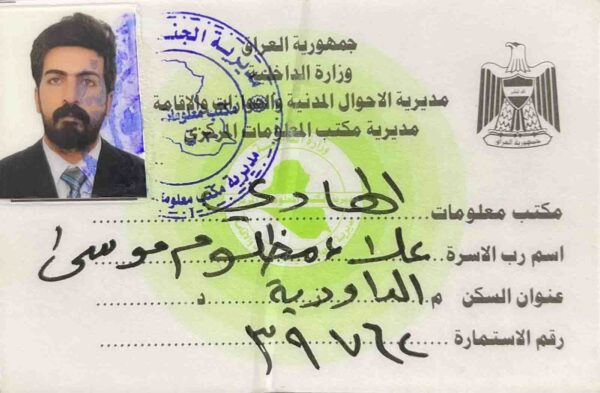 جمهورية العراق
وزارة الداخلية
مديرية الاحوال المدنية والجوازات والاقامة
مديرية مكتب المعلومات المركزي
مكتب معلومات الهادي
اسم رب الاسرة علاء مظلوم موسى
عنوان السكن م الداودية د
رقم الاستمارة ٣٩٧٦٢
جمهورية العراق
مديرية الجنـ
مكتب معلومات
مديرية مكتب معلومات